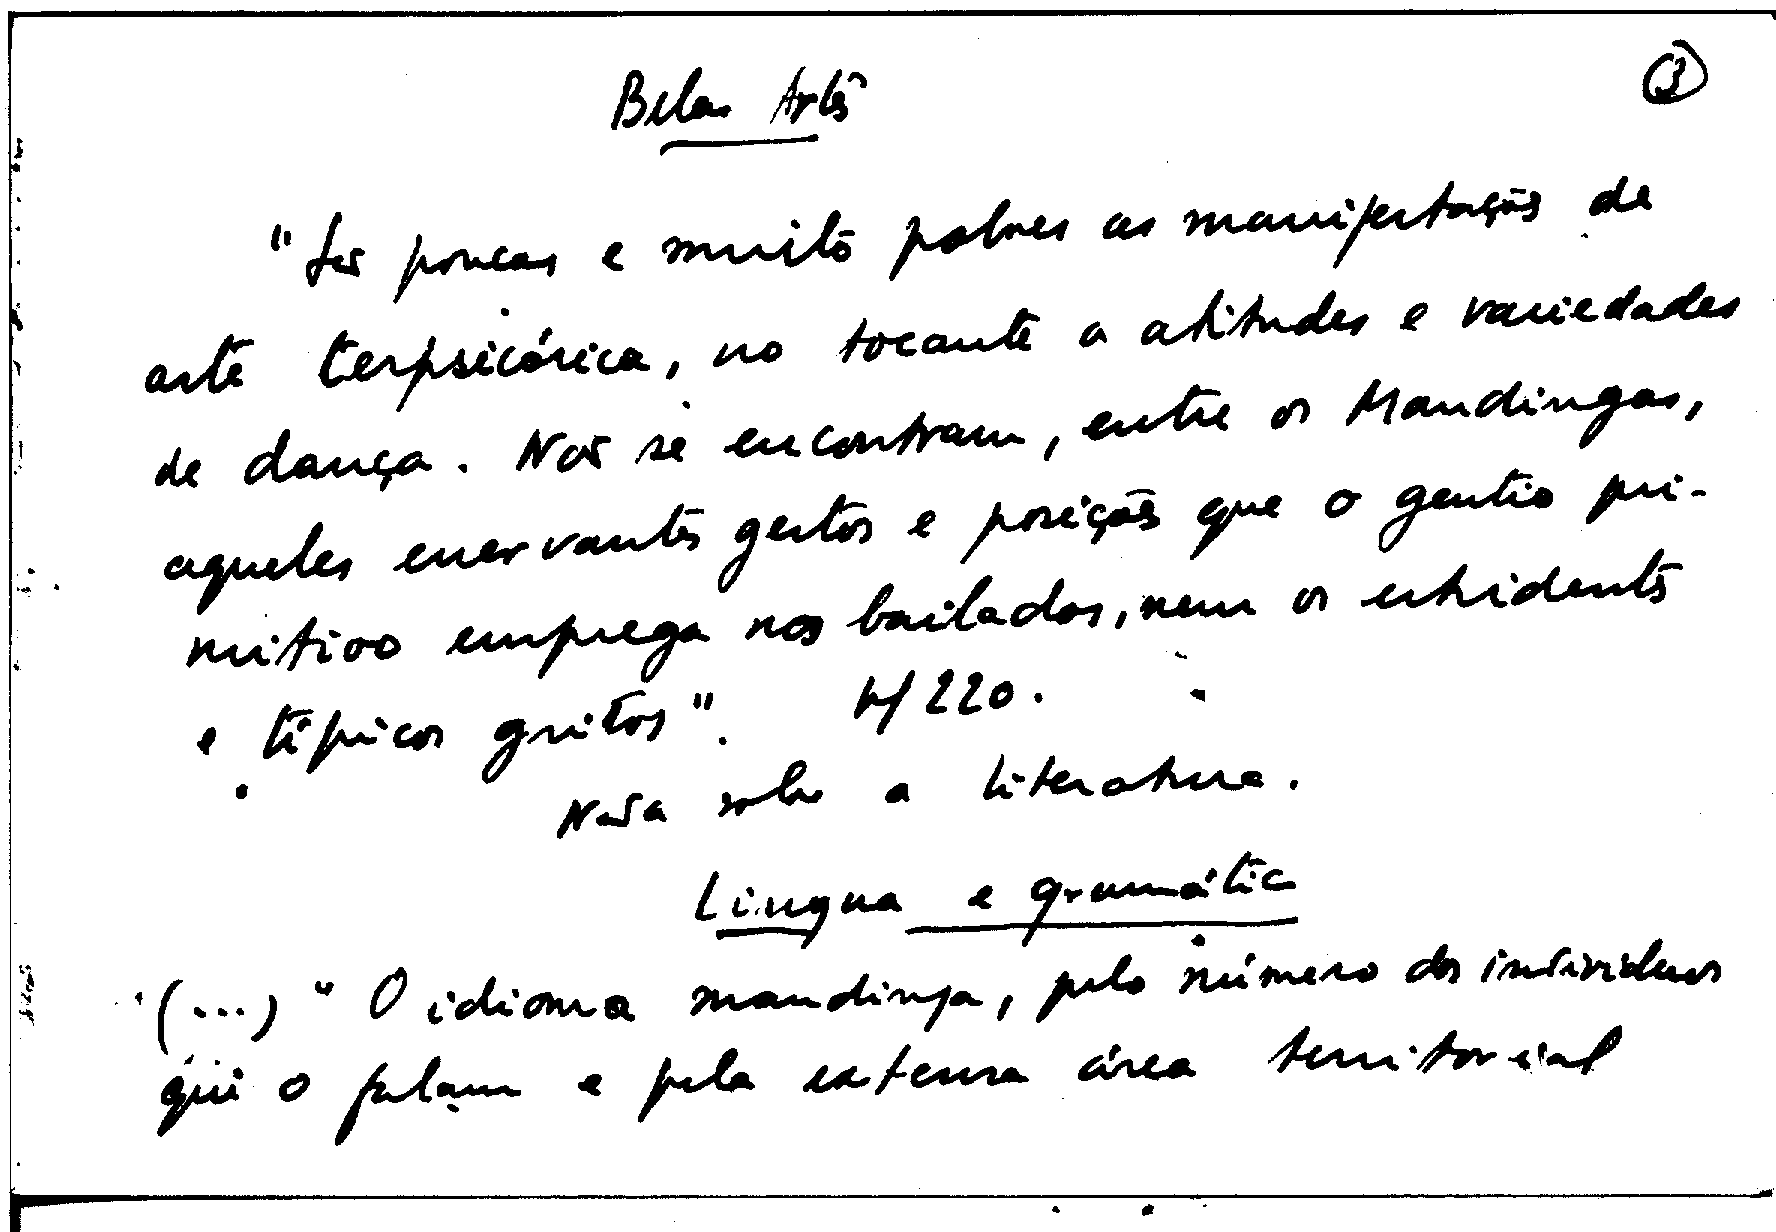 3
Belas Artes
"São poucas e muito pobres as manifestações de
arte terpsicórica, no tocante a atitudes e variedades
de dança. Não se encontram, entre os Mandingas,
aqueles enervantes gestos e posições que o gentio pri-
mitivo emprega nos bailados, nem os estridentes
e típicos gritos". p/220.
Nada sobre a literatura.
Língua e gramática
(...) "O idioma mandinga, pelo número dos indivíduos
que o falam e pela extensa área territorial